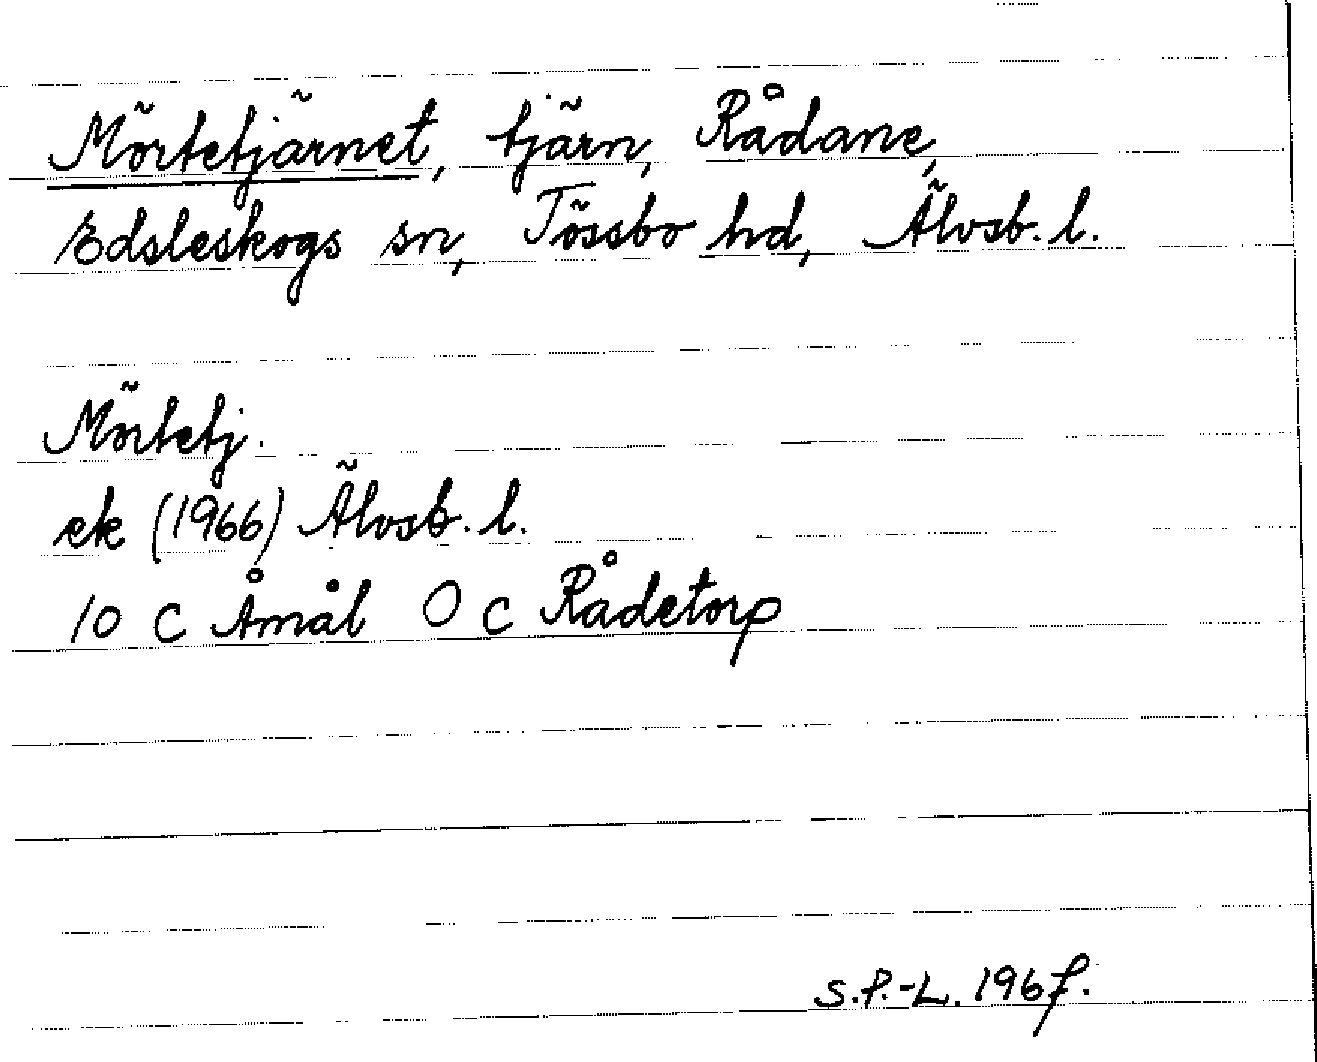 Mörtetjärnet, tjärn, Rådane,
Edsleskogs sn, Tössbo hd, Älvsb. l.
Mörtetj.
ek (1966) Älvsb. l.
10 C Åmål 0 c Rådetorp
S.P.-L. 1967.